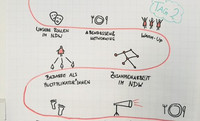 TAG 2
UNSERE ROLLEN
IM NDW
ABENDESSEN
NETWORKING
WARM-UP
BADANER ALS
MULTIPLIKATOR*INNEN
ZUSAMMENARBEIT
IM NDW